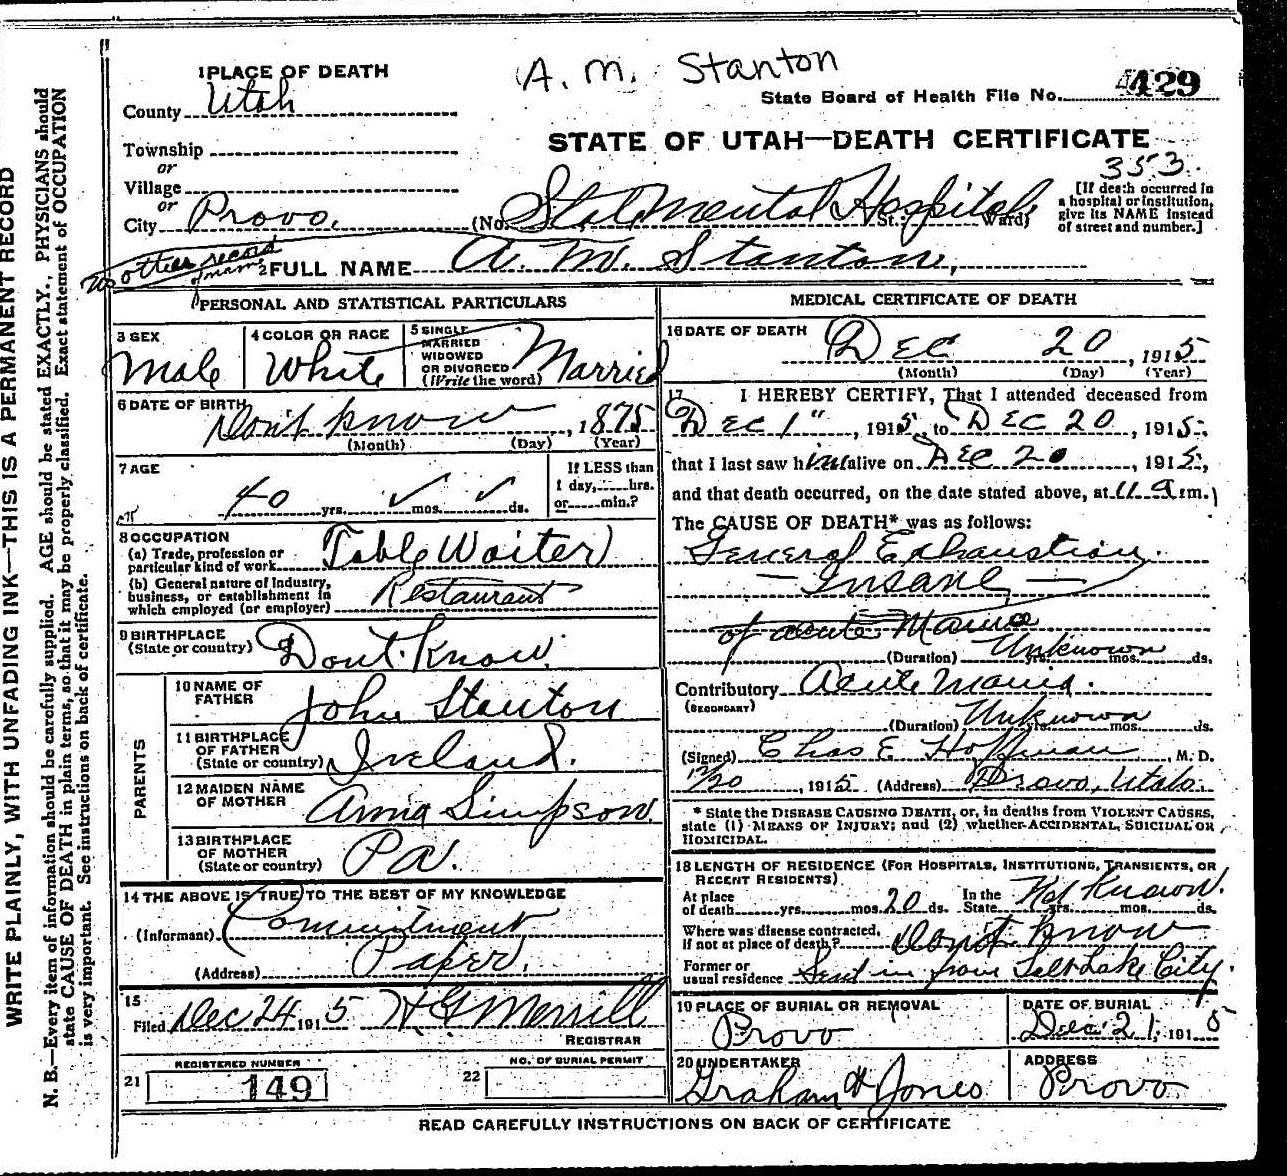 WRITE PLAINLY, WITH UNFADING INK—THIS IS A PERMANENT RECORD
N. B.—Every item of information should be carefully supplied. AGE should be stated EXACTLY. PHYSICIANS should
state CAUSE OF DEATH in plain terms, so that it may be properly classified. Exact statement of OCCUPATION
is very important. See instructions on back of certificate.
A. M. Stanton
1 PLACE OF DEATH
County Utah
Township
or
Village
or
City Provo.
State Board of Health File No. 429
STATE OF UTAH—DEATH CERTIFICATE
353.
(No. State Mental Hospital St.; Ward)
[If death occurred in
a hospital or institution,
give its NAME instead
of street and number.]
no other record
of name
2 FULL NAME A. M. Stanton,
PERSONAL AND STATISTICAL PARTICULARS
3 SEX
Male
4 COLOR OR RACE
White
5 SINGLE
MARRIED
WIDOWED
OR DIVORCED
(Write the word)
Married
6 DATE OF BIRTH
Don't know, 1875
(Month) (Day) (Year)
7 AGE
40 yrs. ✓ mos. ✓ ✓ ds.
If LESS than
1 day, hrs.
or min.?
8 OCCUPATION
(a) Trade, profession or
particular kind of work Table Waiter
(b) General nature of Industry,
business, or establishment in
which employed (or employer) Restaurant
9 BIRTHPLACE
(State or country) Dont Know
PARENTS
10 NAME OF
FATHER John Stanton
11 BIRTHPLACE
OF FATHER
(State or country) Ireland.
12 MAIDEN NAME
OF MOTHER Anna Simpson
13 BIRTHPLACE
OF MOTHER
(State or country) Pa.
14 THE ABOVE IS TRUE TO THE BEST OF MY KNOWLEDGE
(Informant) Commitment
(Address) Paper.
15
Filed Dec 24 1915 H G Merrill
REGISTRAR
REGISTERED NUMBER
21 149
NO. OF BURIAL PERMIT
22
MEDICAL CERTIFICATE OF DEATH
16 DATE OF DEATH
Dec 20, 1915
(Month) (Day) (Year)
17 I HEREBY CERTIFY, That I attended deceased from
Dec 1", 1915, to Dec 20, 1915,
that I last saw him alive on Dec 20, 1915,
and that death occurred, on the date stated above, at 11 a m.
The CAUSE OF DEATH* was as follows:
General Exhaustion
— Insane —
of acute Mania
(Duration) Unknown yrs. mos. ds.
Contributory Acute Mania.
(SECONDARY)
(Duration) Unknown yrs. mos. ds.
(Signed) Chas E. Hoffman, M. D.
12/20, 1915 (Address) Provo, Utah.
* State the DISEASE CAUSING DEATH, or, in deaths from VIOLENT CAUSES,
state (1) MEANS OF INJURY; and (2) whether ACCIDENTAL, SUICIDAL OR
HOMICIDAL.
18 LENGTH OF RESIDENCE (FOR HOSPITALS, INSTITUTIONS, TRANSIENTS, OR
RECENT RESIDENTS)
At place
of death yrs. mos. 20 ds. In the
State Not Known. yrs. mos. ds.
Where was disease contracted,
if not at place of death? Do not know
Former or
usual residence Sent in from Salt Lake City.
19 PLACE OF BURIAL OR REMOVAL
Provo
DATE OF BURIAL
Dec 21, 1915
20 UNDERTAKER
Graham & Jones
ADDRESS
Provo
READ CAREFULLY INSTRUCTIONS ON BACK OF CERTIFICATE